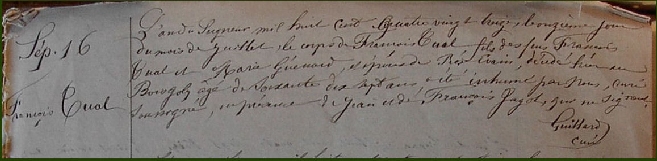 Sép. 16
François Tual
L'an du Seigneur mil huit cent quatre vingt onze, le onzième jour
du mois de Juillet, le corps de François Tual fils des feus François
Tual et Marie Guénard, époux de décédé hier au
Bourg âgé de soixante dix sept ans a été inhumé par Nous, curé
soussigné, en présence de Jean et de François Jagot, qui ne signent
Guillard
curé